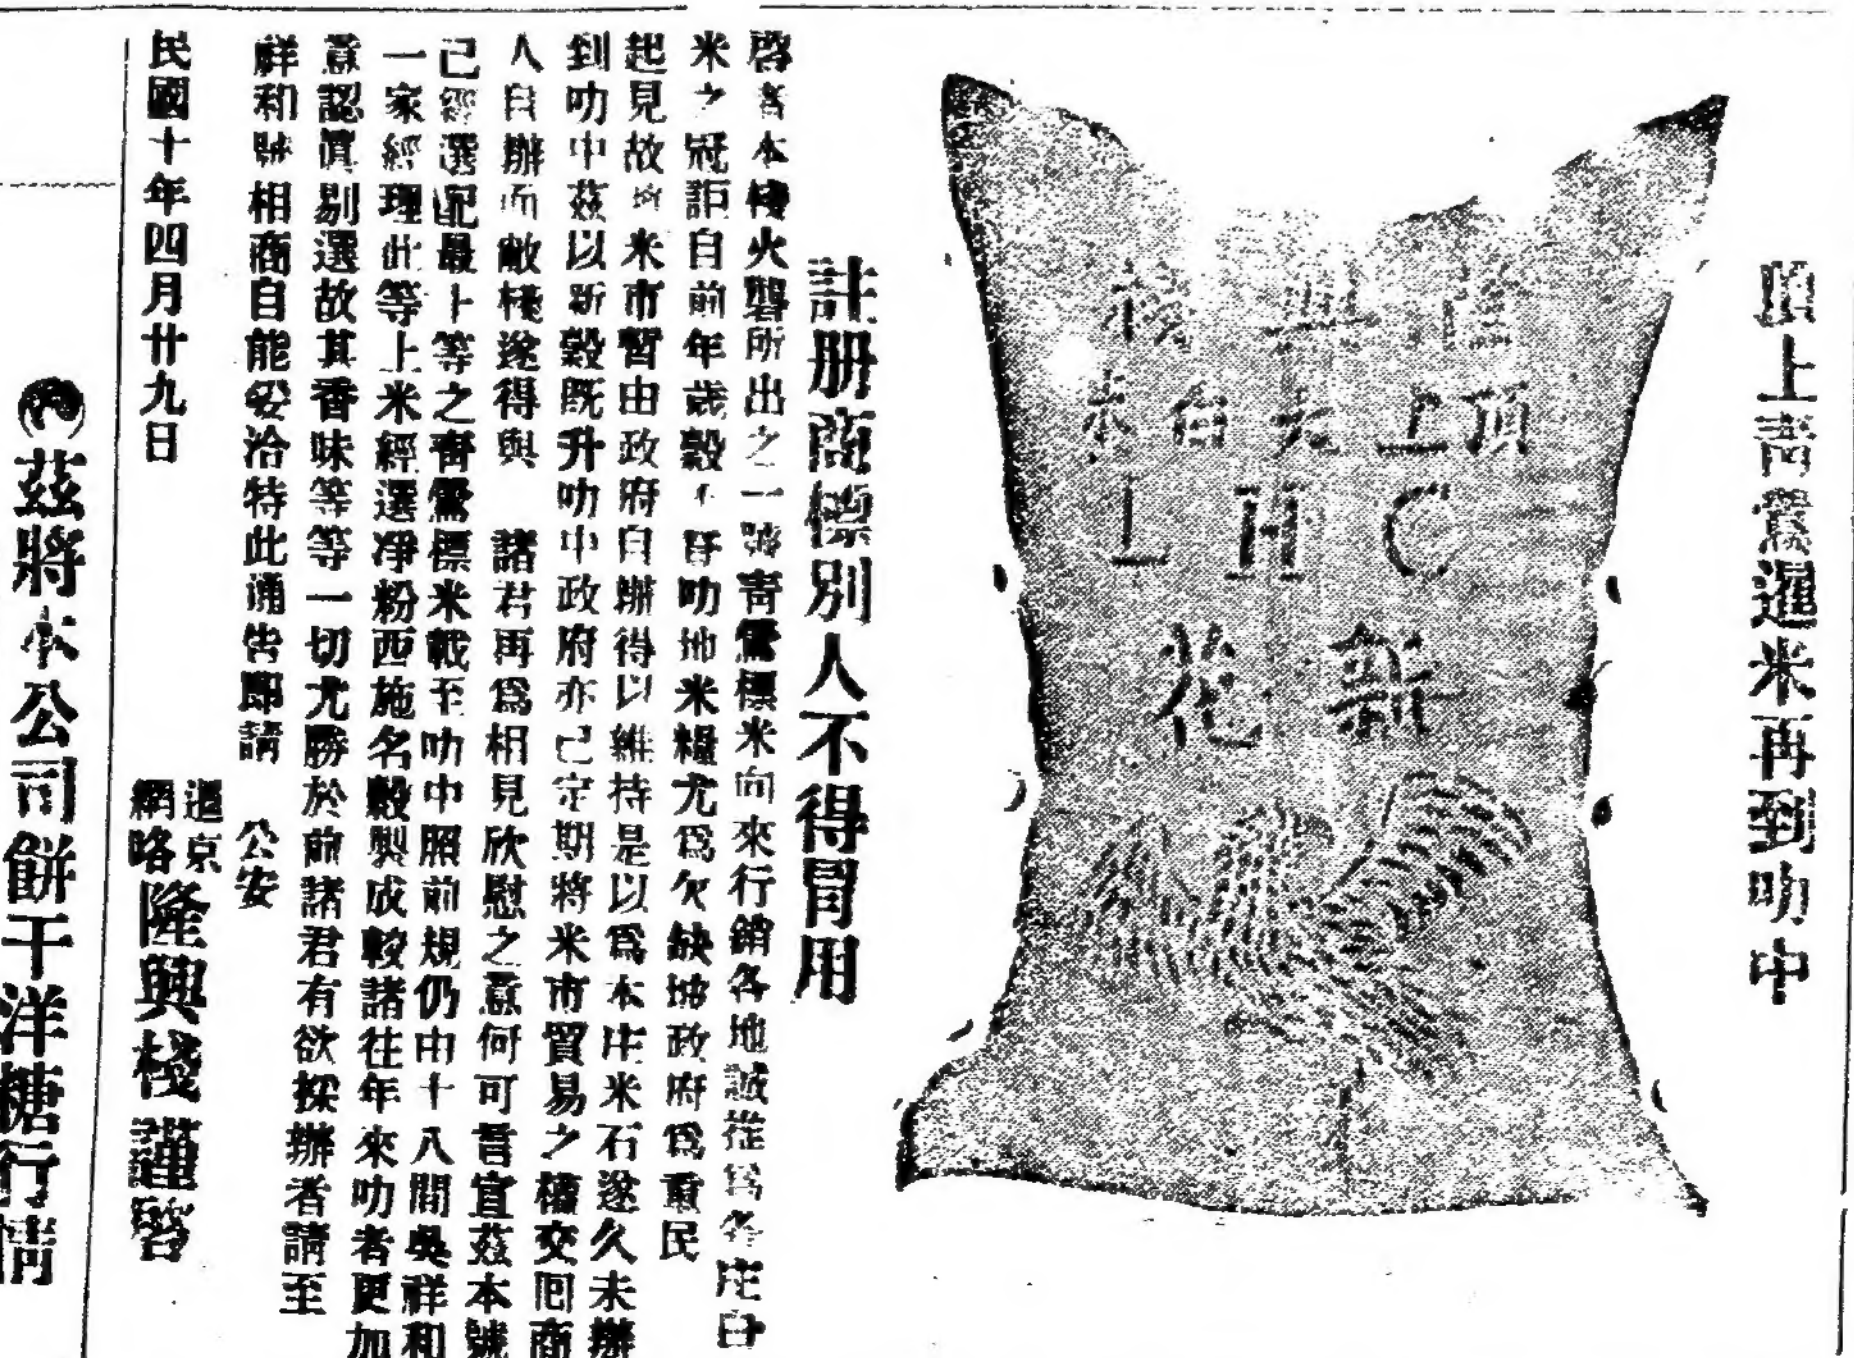 頂上靑鶯暹米再到叻中
頂上大白米
C H L
新花
註册商標別人不得冐用
啓者本棧火礱所出之一號靑鶯標米向來行銷各地誠推爲各庄白
米之冠詎自前年歲穀不登叻地米糧尤爲欠缺坡政府爲重民
起見故將米市暫由政府自辦得以維持是以爲本庄米石遂久未辦
到叻中茲以新穀旣升叻中政府亦已定期將米市貿易之權交囘商
人自辦而敝棧遂得與 諸君再爲相見欣慰之意何可言宣茲本號
己經選配最上等之靑鶯標米載至叻中照前規仍由十八間吳祥和
一家經理此等上米經選凈粉西施名穀製成較諸往年來叻者更加
意認眞剔選故其香味等等一切尤勝於前諸君有欲採辦者請至
祥和號相商自能妥洽特此通告即請 公安
暹京
網咯
隆興棧謹啓
民國十年四月廿九日
茲將本公司餅干洋糖行情